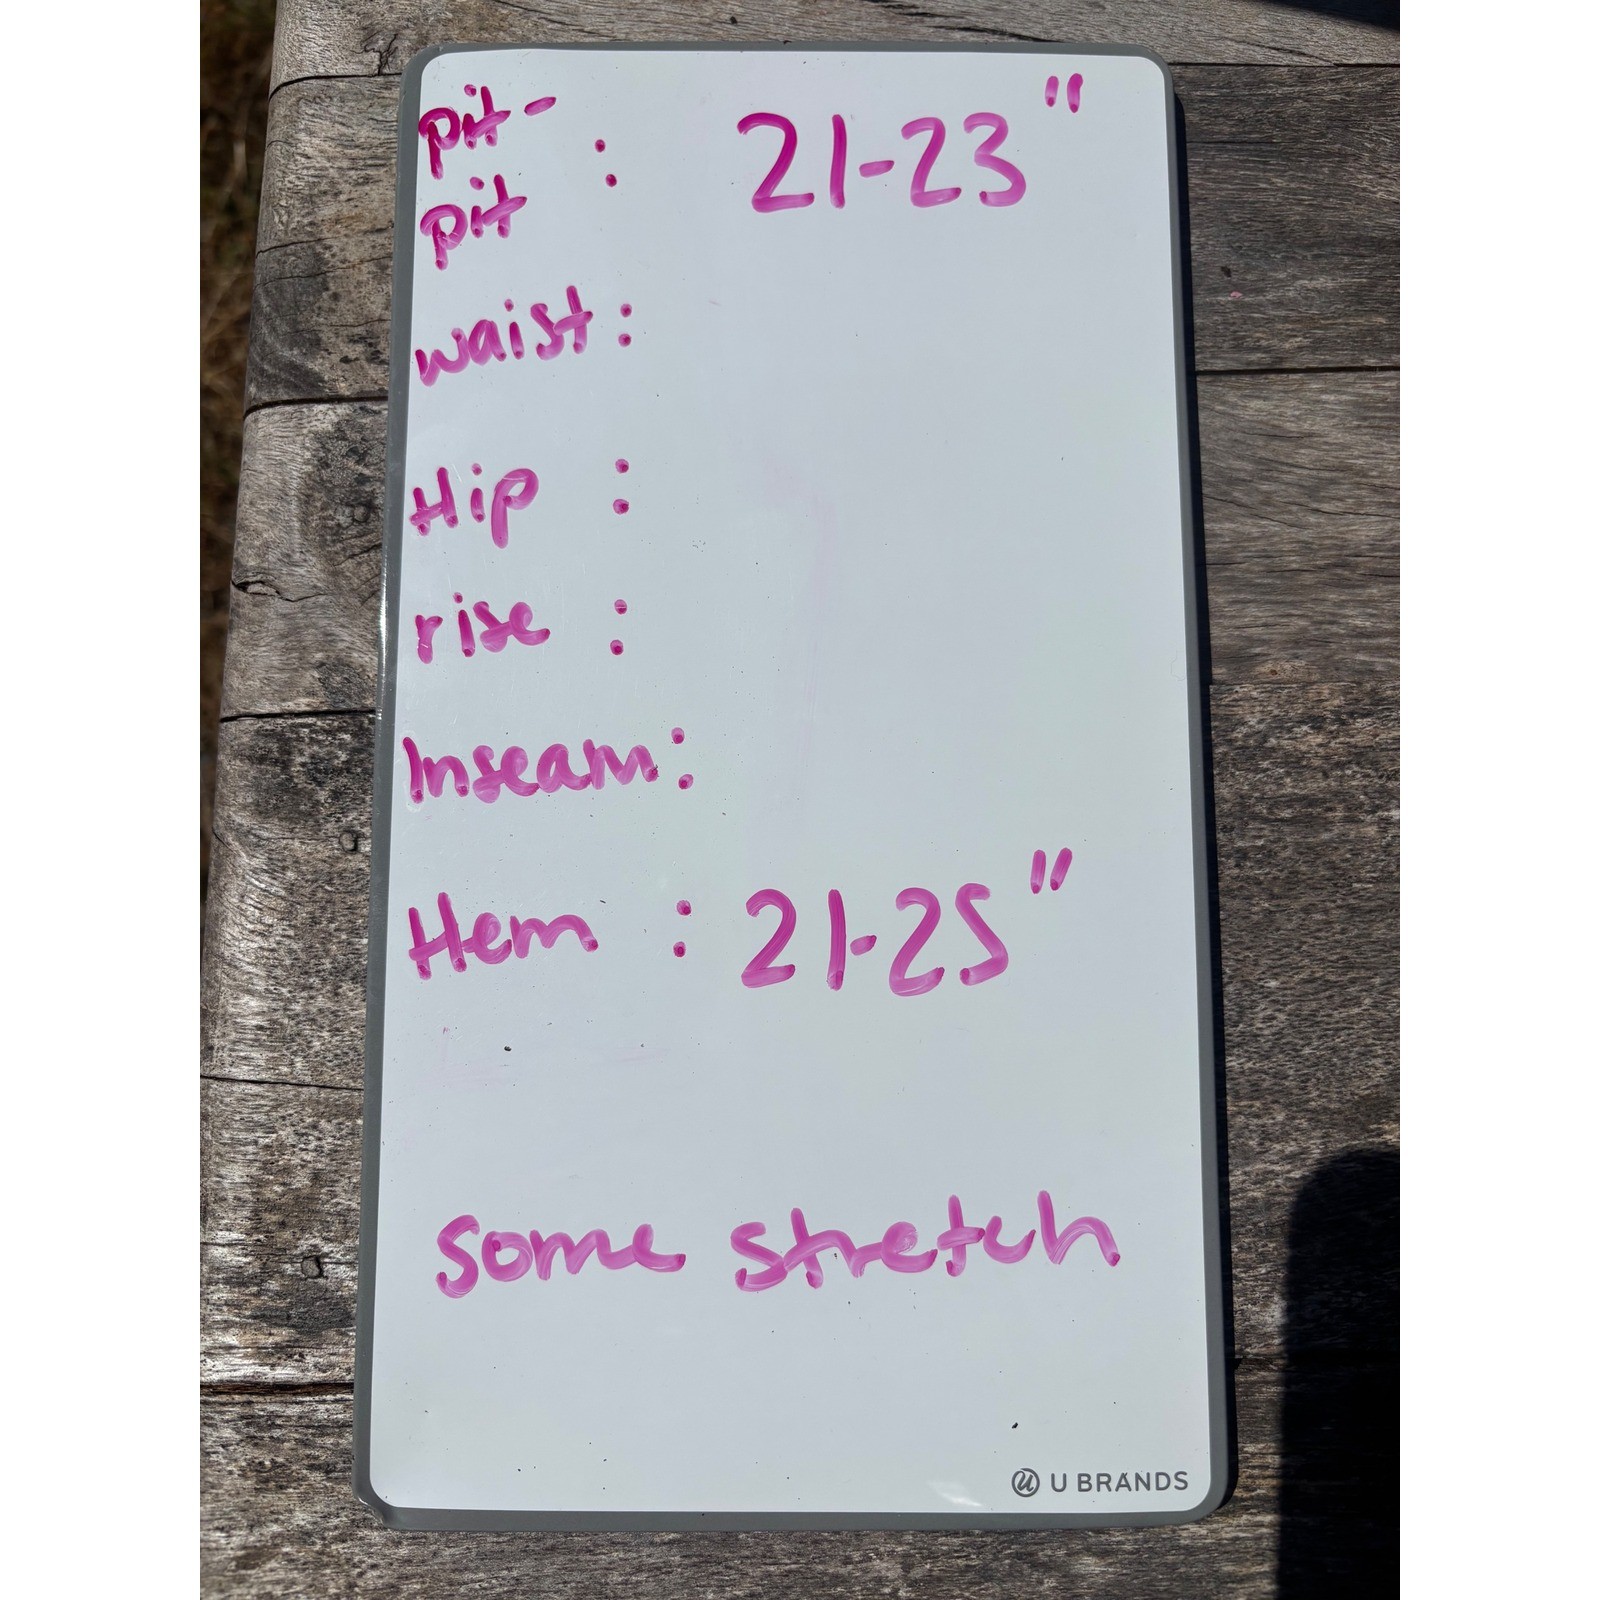 pit-
pit : 21-23"
waist:
Hip :
rise :
Inseam:
Hem : 21-25"
some stretch
U BRANDS